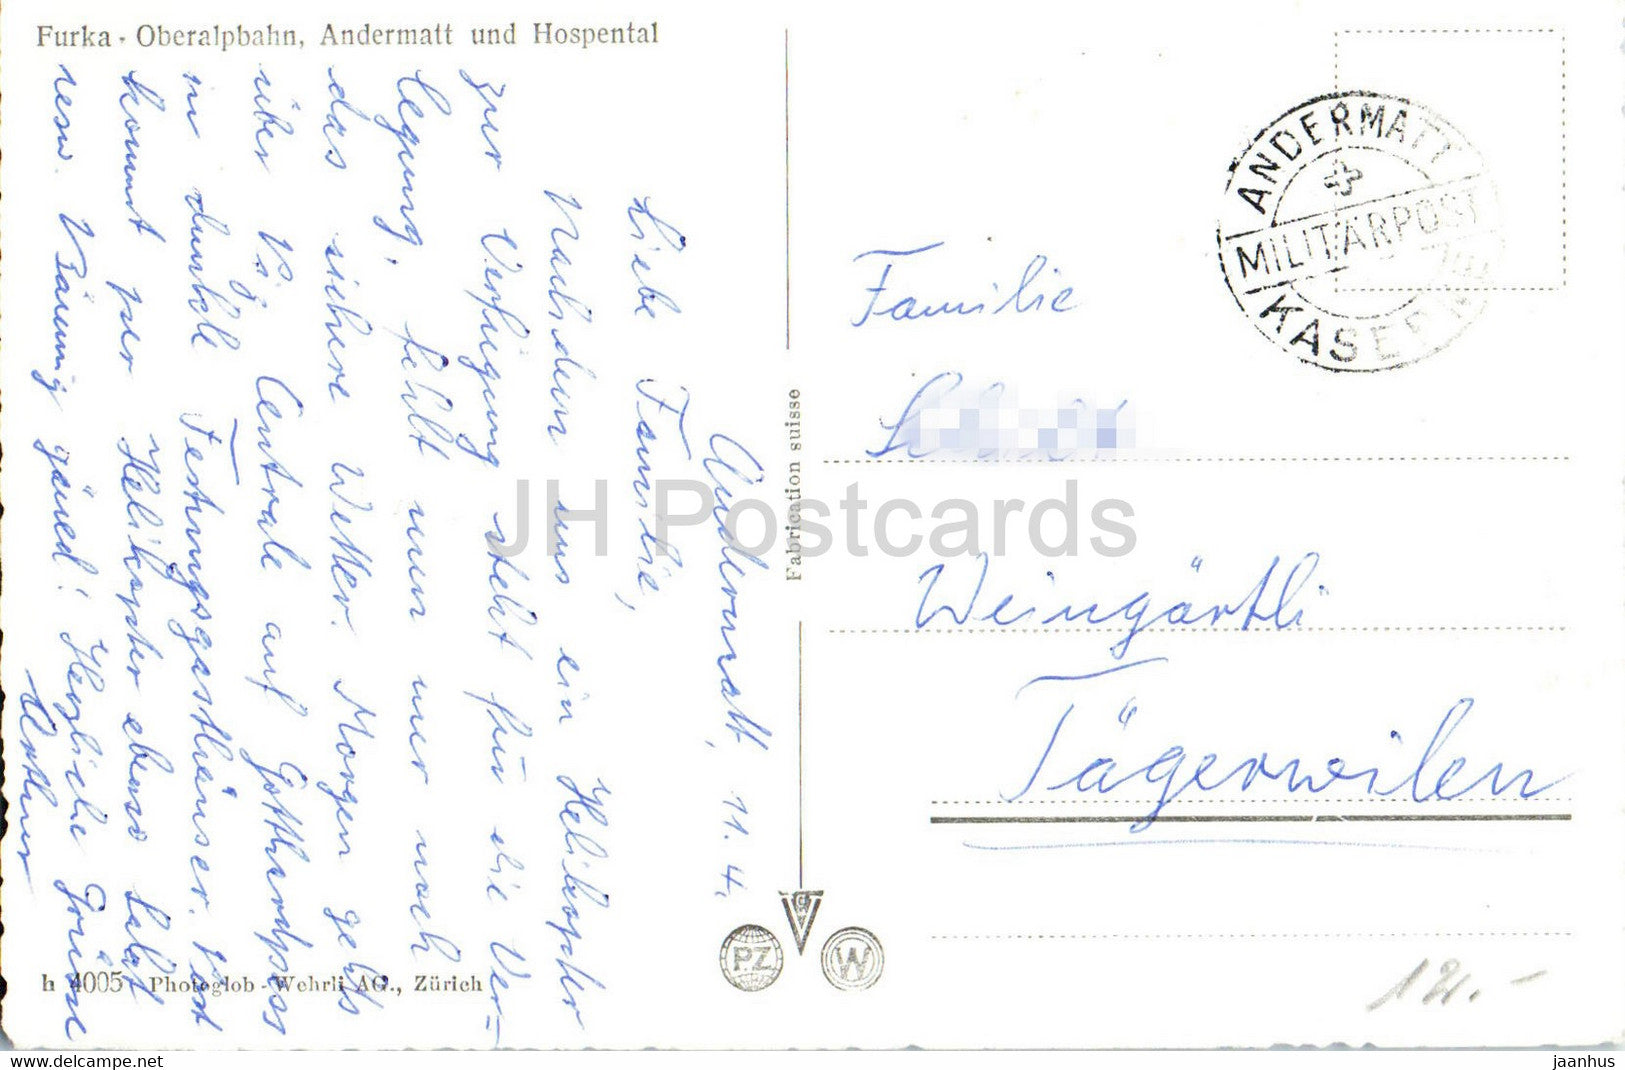 Furka - Oberalpbahn, Andermatt und Hospental
Andermatt, 11. 4.
Liebe Familie,
Nachdem uns ein Helikopter
zur Verfügung steht für die Ver-
legung, fehlt nun nur noch
das sichere Wetter. Morgen gehts
über Vsg Centrale auf Gotthardpass
in dunkle Festungsgasthäuser. Post
kommt per Helikopter ebenso Salat
resw. Bäumig gäued! Herzliche Grüsse
Arthur
h 4005 Photoglob - Wehrli AG., Zürich
Fabrication suisse
PZ
W
ANDERMATT
MILITÄRPOST
KASERNE
Familie
Weingärtli
Tägerweilen
12.-
JH Postcards
https://marrymum.com
jaanhus